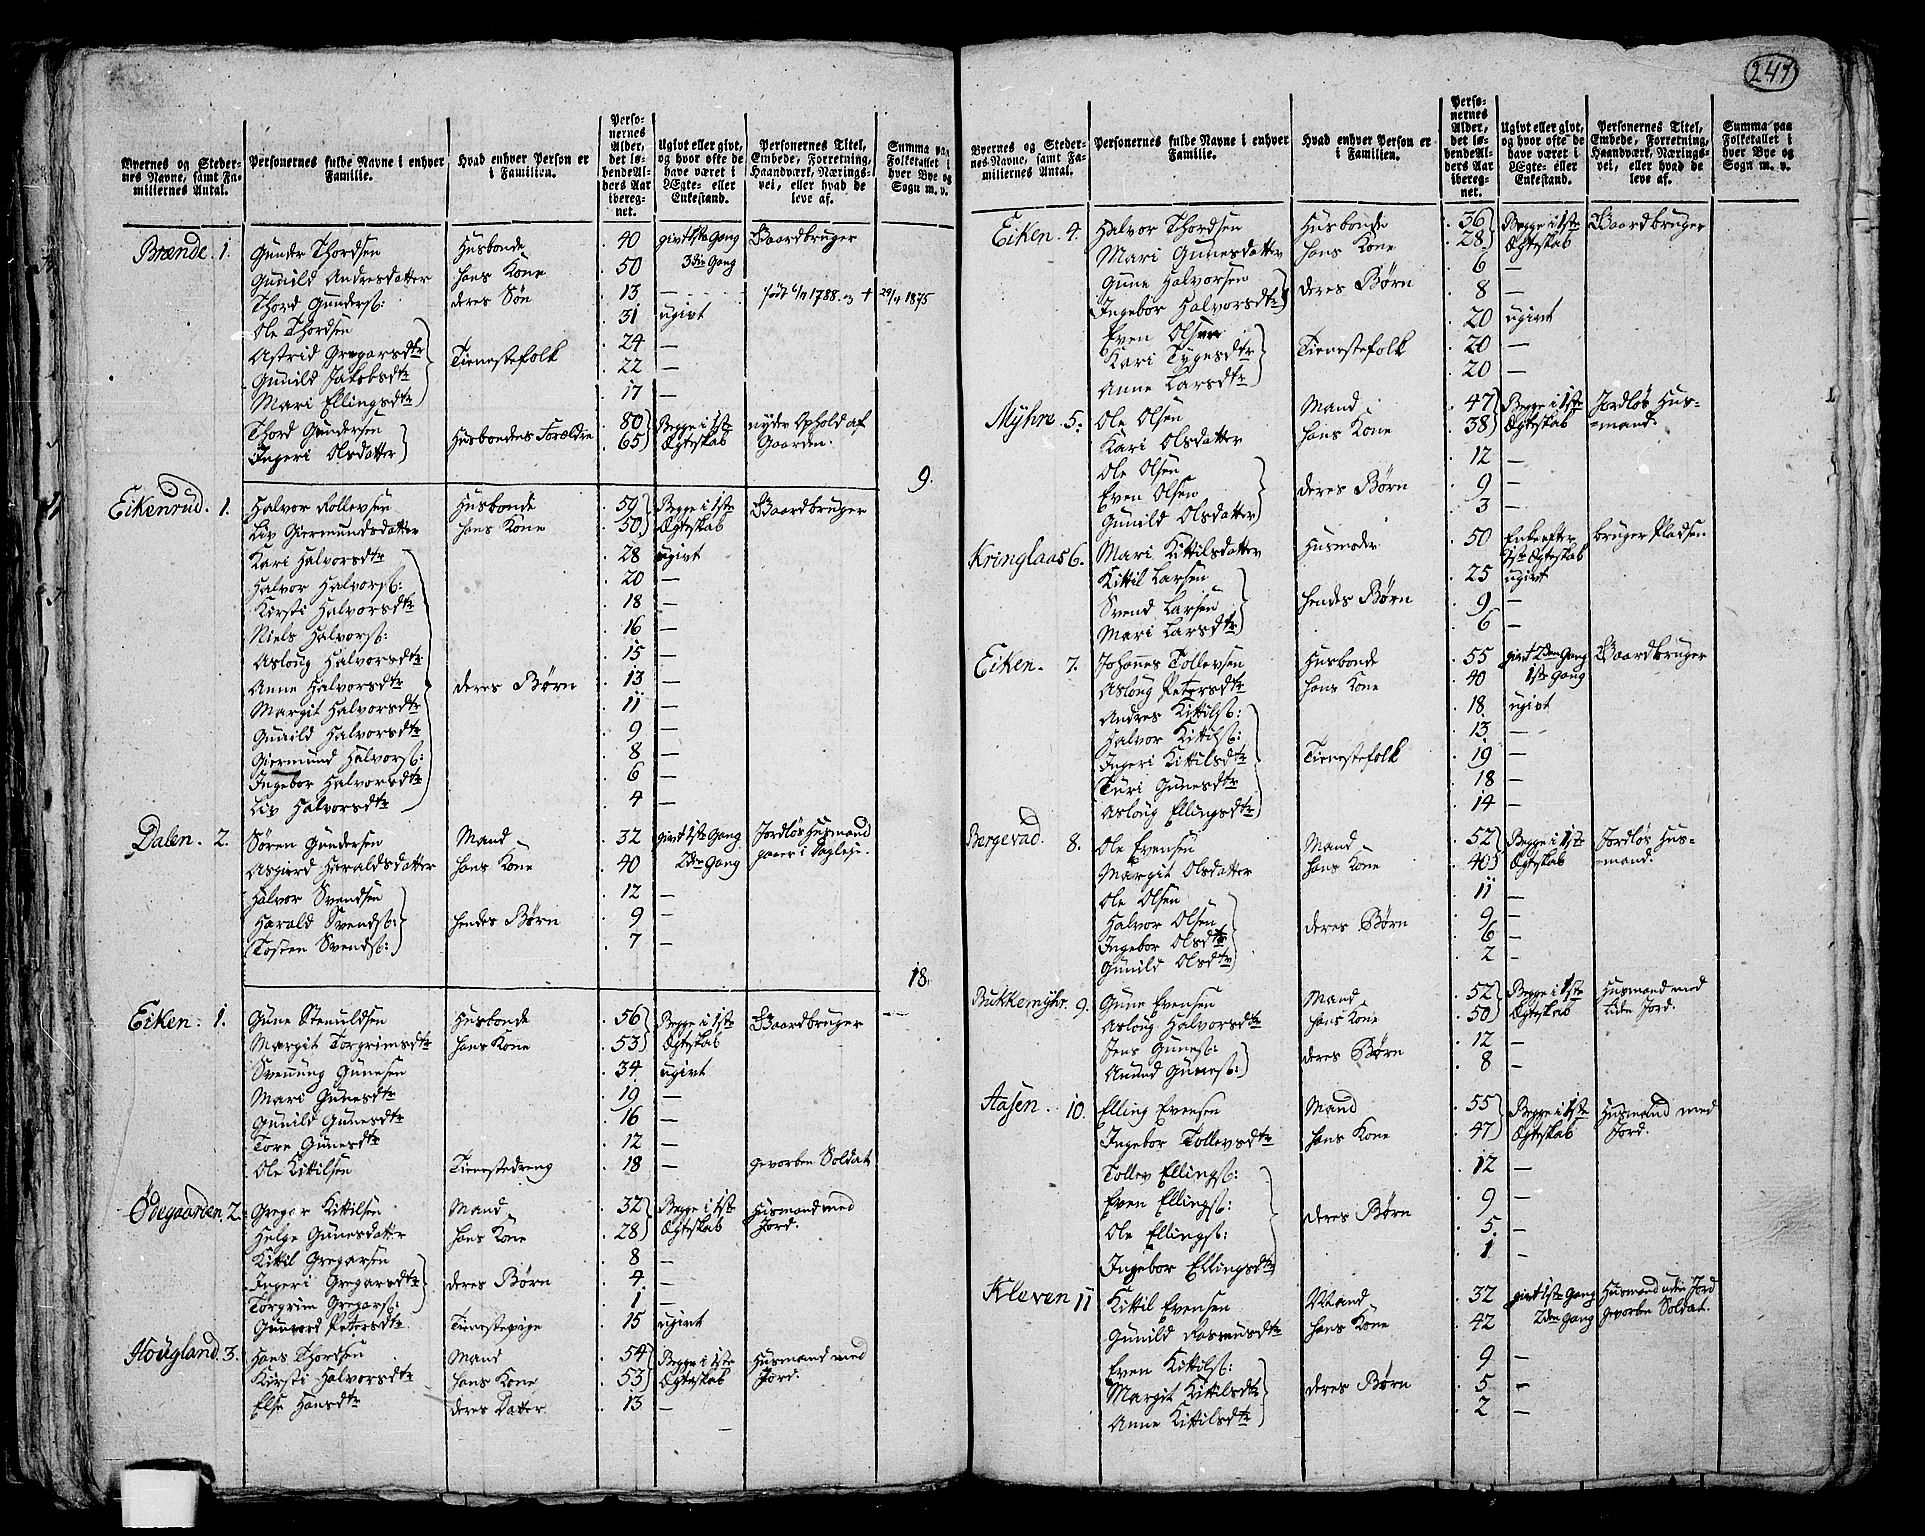 247
Byernes og Steder- nes Navne, samt Fa- miliernes Antal. | Personernes fulde Navne i enhver Familie. | Hvad enhver Person er i Familien. | Perso- nernes Alder, det lø- bende Al- ders Aar ibereg- net. | Ugivt eller givt, og hvor ofte de have været i Ægte- eller Enkestand. | Personernes Titel, Embede, Forretning, Haandværk, Nærings- vei, eller hvad de leve af. | Summa paa Folketallet i hver Bye og Sogn m. v.
Brænde. 1. Gunder Thordsen Husbonde 40 givt 1ste Gang Gaardbruger
Gunild Andresdatter hans Kone 50 3die Gang
Thord Gunders: deres Søn 13 — født 1788. † 29/4 1875
Ole Thordsen 31 ugivt
Astrid Gregarsdtr Tienestefolk 24 —
Gunild Jakobsdtr 22 —
Mari Ellingsdtr 17 —
Thord Gundersen Husbondens Forældre 80 Begge i 1ste nyder Ophold af
Ingeri Olsdatter 65 Ægteskab Gaarden.
9.
Eikenrud. 1. Halvor Rollevsen Husbonde 59 Begge i 1ste Gaardbruger
Liv Giermundsdatter hans Kone 50 Ægteskab
Kari Halvorsdtr 28 ugivt
Halvor Halvors: 20 —
Kirsti Halvorsdtr 18 —
Niels Halvors: 16 —
Asloug Halvorsdtr 15 —
Anne Halvorsdtr deres Børn 13 —
Margit Halvorsdtr 11 —
Gunild Halvorsdtr 9 —
Giermund Halvors: 8 —
Ingebor Halvorsdtr 6 —
Liv Halvorsdtr 4 —
Dalen. 2. Sören Gundersen Mand 32 givt 1ste Gang Jordløs Husmand
Asgierd Haraldsdatter hans Kone 40 2den Gang gaaer i Dagleje.
Halvor Svendsen 12 —
Harald Svends: hendes Børn 9 —
Tosten Svends: 7 —
18.
Eiken. 1. Gune Stenuldsen Husbonde 56 Begge i 1ste Gaardbruger
Margit Torgrimsdtr hans Kone 53 Ægteskab
Svennung Gunesen 34 ugivt
Mari Gunesdtr 19 —
Gunild Gunesdtr 16 —
Tore Gunesdtr 12 —
Ole Kittilsen Tienestedreng 18 — gevorben Soldat
Ødegaarden. 2. Gregar Kittilsen Mand 32 Begge i 1ste Husmand med
Helge Gunesdatter hans Kone 28 Ægteskab Jord.
Kittil Gregarsen 8 —
Ingeri Gregarsdtr deres Børn 4 —
Torgrim Gregars: 1 —
Gunvord Petersdtr Tienestepige 15 ugivt
Hougland. 3. Hans Thordsen Mand 54 Begge i 1ste Husmand med
Kirsti Halvorsdtr hans Kone 53 Ægteskab Jord.
Else Hansdtr deres Datter 13 —
Byernes og Steder- nes Navne, samt Fa- miliernes Antal. | Personernes fulde Navne i enhver Familie. | Hvad enhver Person er i Familien. | Perso- nernes Alder, det lø- bende Al- ders Aar ibereg- net. | Ugivt eller givt, og hvor ofte de have været i Ægte- eller Enkestand. | Personernes Titel, Embede, Forretning, Haandværk, Nærings- vei, eller hvad de leve af. | Summa paa Folketallet i hver Bye og Sogn m. v.
Eiken. 4. Halvor Thordsen Husbonde 36 Begge i 1ste Gaardbruger
Mari Gunesdatter hans Kone 28 Ægteskab
Gune Halvorsen deres Børn 6 —
Ingebor Halvorsdtr 8 —
Even Olsen 20 ugivt
Kari Tygesdtr Tienestefolk 20 —
Anne Larsdtr 20 —
Myhre. 5. Ole Olsen Mand 47 Begge i 1ste Jordløs Hus-
Kari Olsdatter hans Kone 38 Ægteskab -mand.
Ole Olsen 12 —
Even Olsen deres Børn 9 —
Gunild Olsdatter 3 —
Kringlaas 6. Mari Kittilsdatter Husmoder 50 Enke efter bruger Pladsen
1ste Ægteskab
Kittil Larsen 25 ugivt
Svend Larsen hendes Børn 9 —
Mari Larsdtr 6 —
Eiken. 7. Johannes Tollevsen Husbonde 55 givt 2den Gang Gaardbruger
Asloug Petersdtr hans Kone 40 1ste Gang
Andres Kittils: 18 ugivt
Halvor Kittils: 13 —
Ingeri Kittilsdtr Tienestefolk 19 —
Turi Gunesdtr 18 —
Asloug Ellingsdtr 14 —
Bergevad. 8. Ole Evensen Mand 52 Begge i 1ste Jordløs Hus-
Margit Olsdatter hans Kone 40 Ægteskab -mand.
Ole Olsen 11 —
Halvor Olsen deres Børn 9 —
Ingebor Olsdtr 6 —
Gunild Olsdtr 2 —
Bukkemyhr. 9. Gune Evensen Mand 52 Begge i 1ste Husmand med
Asloug Halvorsdtr hans Kone 50 Ægteskab lidn Jord.
Jens Gunes: 12 —
Anund Gunes: deres Børn 8 —
Aasen. 10. Elling Evensen Mand 55 Begge i 1ste Husmand med
Ingebor Tollevsdtr hans Kone 47 Ægteskab Jord.
Tollev Ellings: 12 —
Even Ellings: deres Børn 9 —
Ole Ellings: 5 —
Ingebor Ellingsdtr 1 —
Kleven 11 Kittil Evensen Mand 32 givt 1ste Gang Husmand uden Jord
Gunild Rasmusdtr hans Kone 42 2den Gang Gevorben Soldat.
Even Kittils: 9 —
Margit Kittilsdtr deres Børn 5 —
Anne Kittilsdtr 2 —